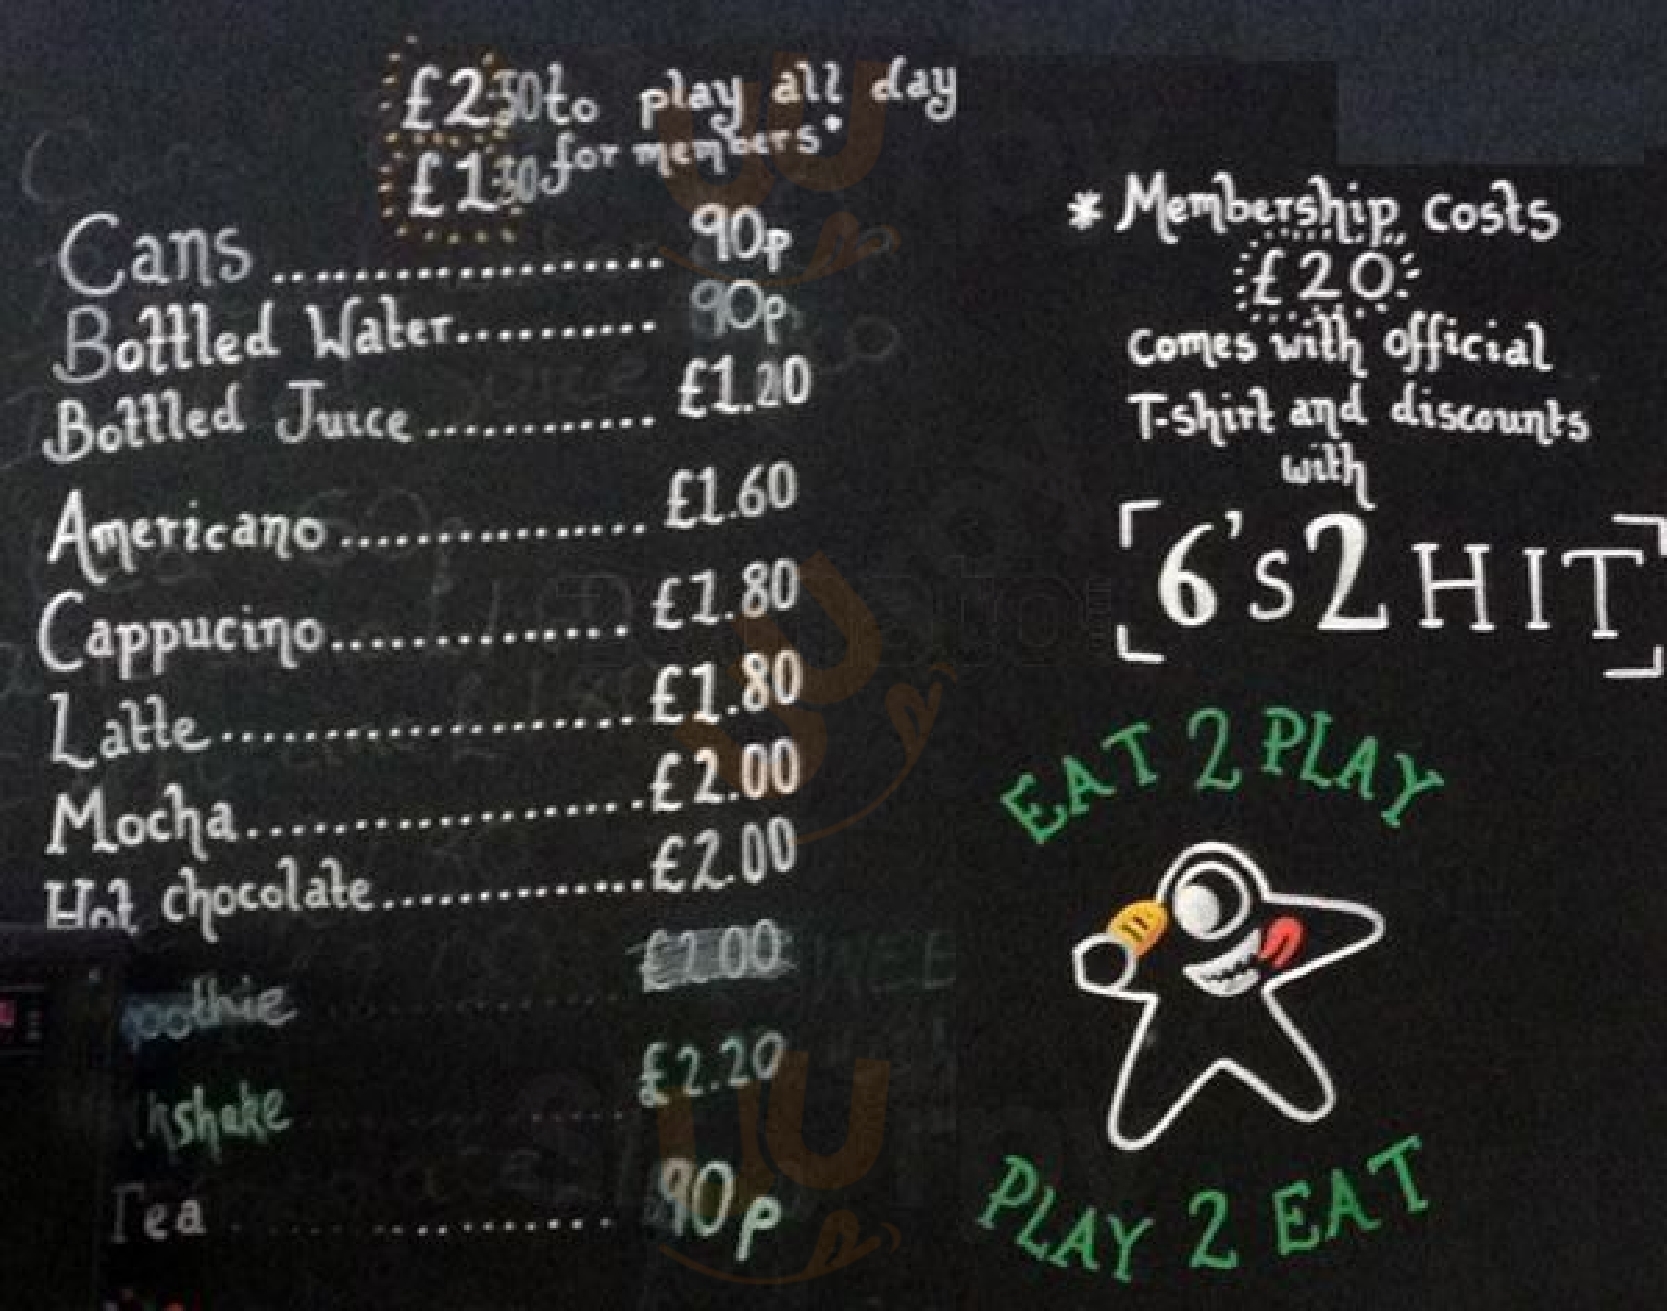 £2.50 to play all day
£1.50 for members*
Cans .................... 90p
Bottled Water.......... 90p
Bottled Juice ............ £1.20
Americano ................ £1.60
Cappucino............... £1.80
Latte..................... £1.80
Mocha..................... £2.00
Hot chocolate.............. £2.00
oothie ................ £2.00
kshake ............ £2.20
Tea ................ 90p
* Membership costs
£20
comes with official
T-shirt and discounts
with
6's 2 HIT
EAT 2 PLAY
PLAY 2 EAT